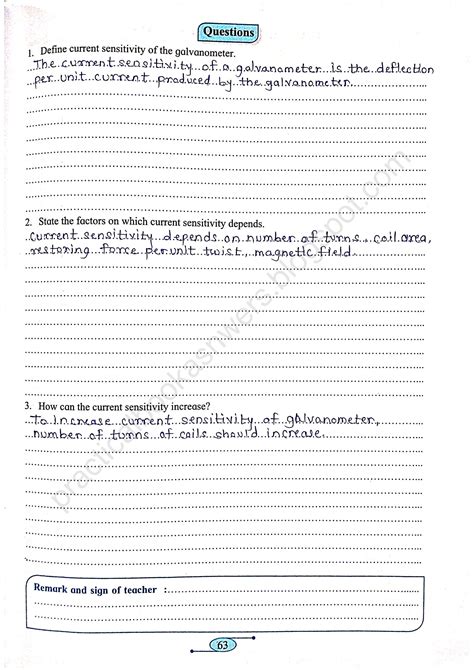 Questions
1. Define current sensitivity of the galvanometer.
The current sensitivity of a galvanometer is the deflection
per unit current produced by the galvanometer.
2. State the factors on which current sensitivity depends.
Current sensitivity depends on number of turns, coil area,
restoring force per unit twist, magnetic field.
3. How can the current sensitivity increase?
To increase current sensitivity of galvanometer,
number of turns of coils should increase.
practicalbookasnwers.blogspot.com
Remark and sign of teacher :
63